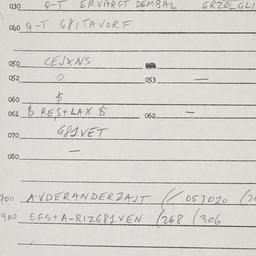 030 Q-T ERVARGT DEMBAL ERZOLGLI
040 Q-T G8ITAVORF
050 CEJXNS
052 0 053 —
060 $
061 $ RES+LAX $ 062 —
070 G81VET
080 —
900 AVDERANDERZAJT (/ 057020
900 EFS+A-RIZG81VEN (268 (306